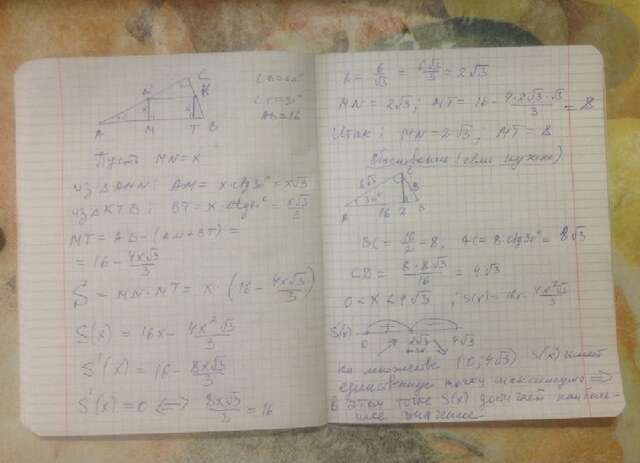 C
N
K
A M T B
∠B=60°
∠A=30°
AB=16
Пусть MN = x
из ΔAMN: AM = x·ctg30° = x√3
из ΔKTB: BT = x·ctg60° = x√3/3
MT = AB − (AM + BT) =
= 16 − 4x√3/3
S = MN·MT = x·(16 − 4x√3/3)
S(x) = 16x − 4x²√3/3
S'(x) = 16 − 8x√3/3
S'(x) = 0 <=> 8x√3/3 = 16
x = 6/√3 = 6√3/3 = 2√3
MN = 2√3; MT = 16 − 4·2√3·√3/3 = 8
Итак: MN = 2√3; MT = 8
Объяснение (если нужно)
8√3 C
8
30°
A 16 2 B
BC = 16/2 = 8, AC = 8·ctg30° = 8√3
CD = 8·8√3/16 = 4√3
0 < x < 4√3; S(x) = 16x − 4x²√3/3
S'(x) + −
0 2√3 4√3
на множестве (0; 4√3) S(x) имеет
единственную точку максимума =>
в этой точке S(x) достигает наиболь-
шее значение.